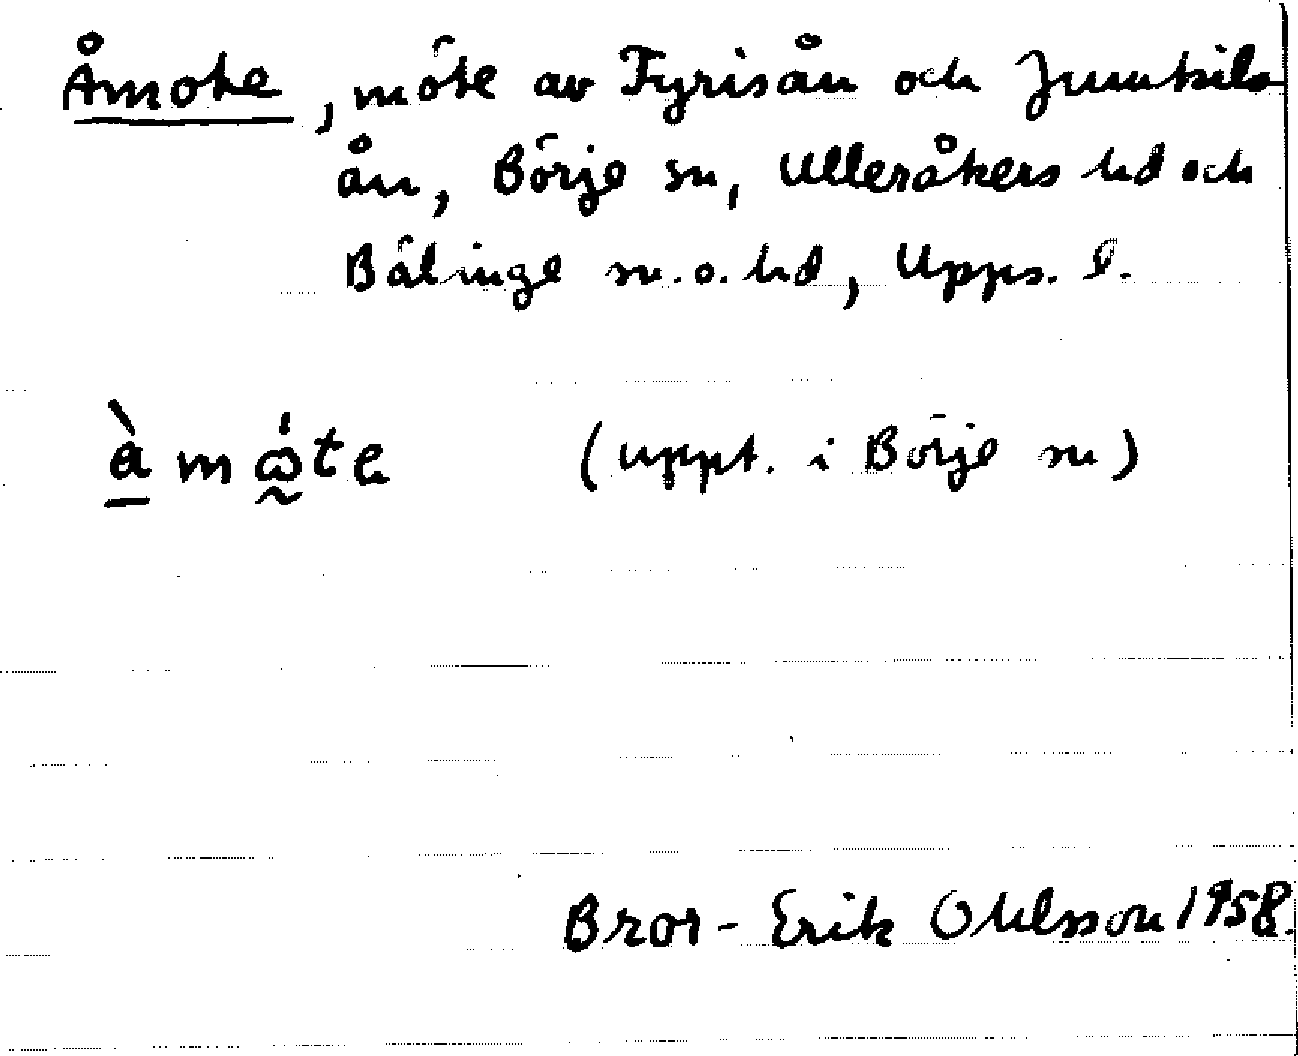 Åmoke, möte av Fyrisån och Jumkils
ån, Börje sn, Ulleråkers hd och
Bälinge sn. o. hd, Upps. l.
(uppt. i Börje sn)
Bror-Erik Ohlsson 1958.